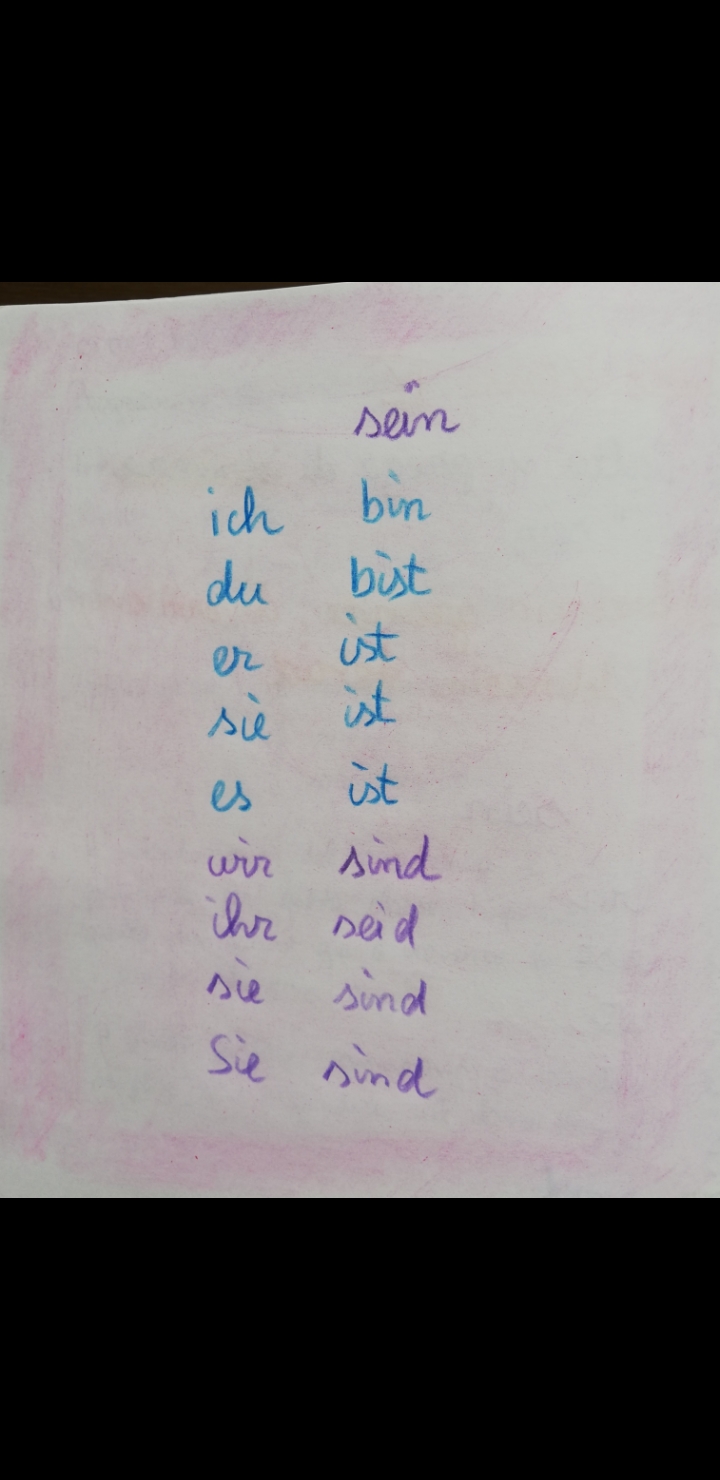 sein
ich bin
du bist
er ist
sie ist
es ist
wir sind
ihr seid
sie sind
Sie sind